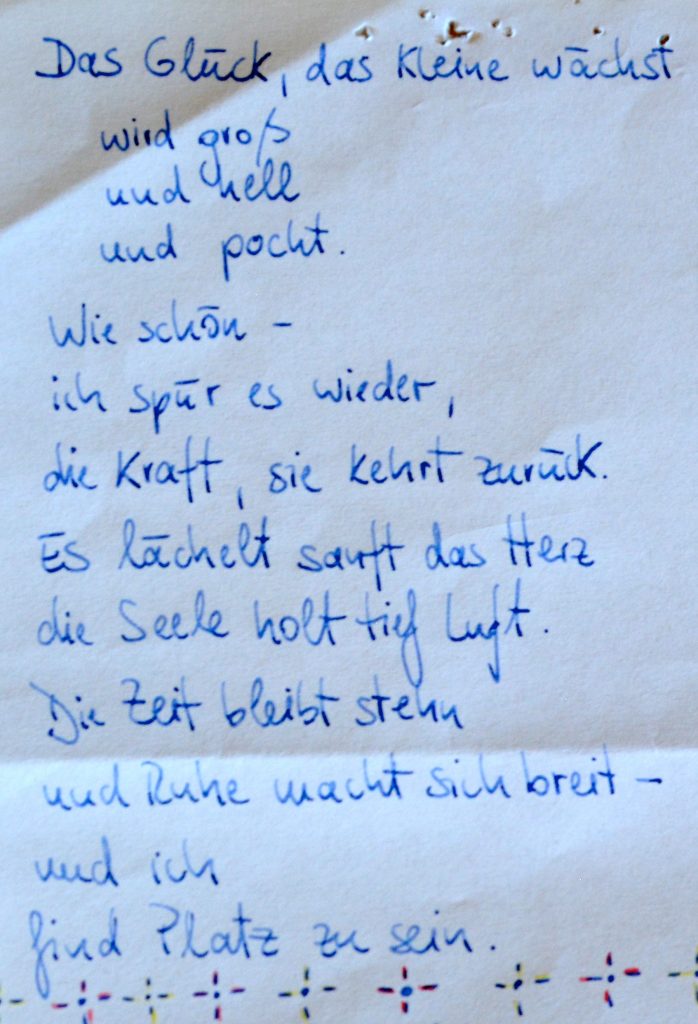 Das Glück, das kleine wächst
wird groß
und hell
und pocht.
Wie schön –
ich spür es wieder,
die Kraft, sie kehrt zurück.
Es lächelt sanft das Herz
die Seele holt tief Luft.
Die Zeit bleibt stehn
und Ruhe macht sich breit –
und ich
find Platz zu sein.